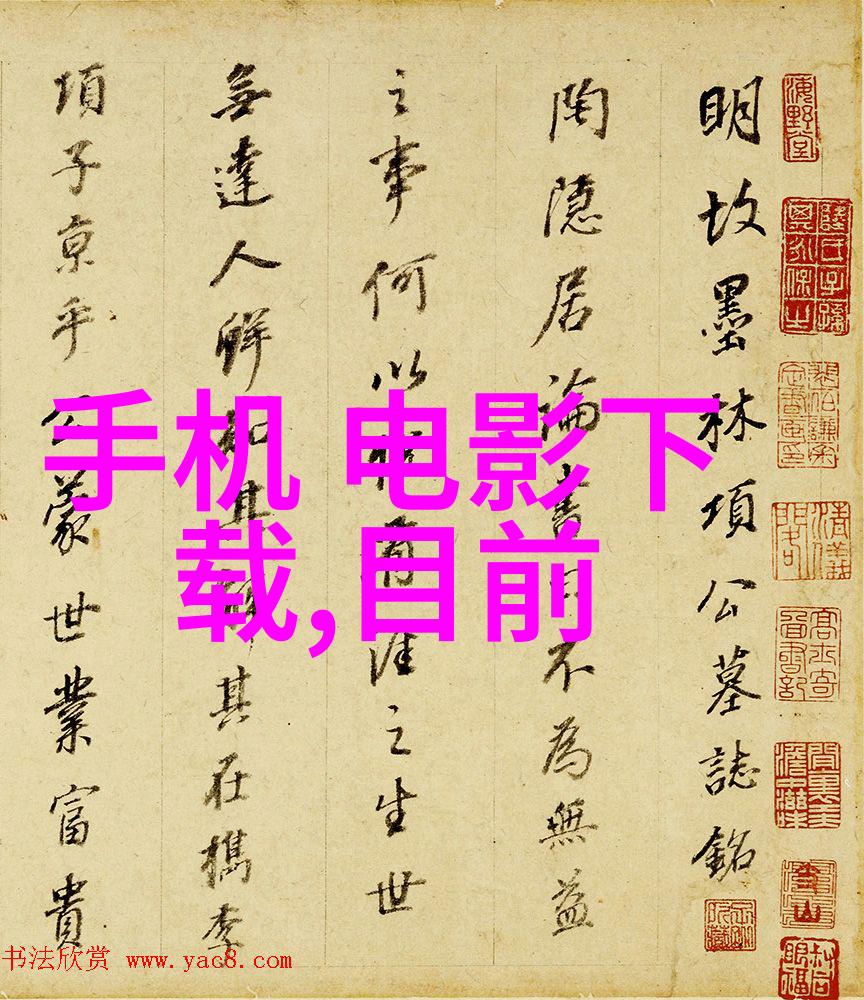 明故墨林項公墓誌銘
陶隱居論書曰不為無益
之事何以悅有涯之生世
無達人鮮知其解其在檇李
項子京乎公蒙世業富貴
手机 电影下
载,目前
书法欣赏 www.yac8.com